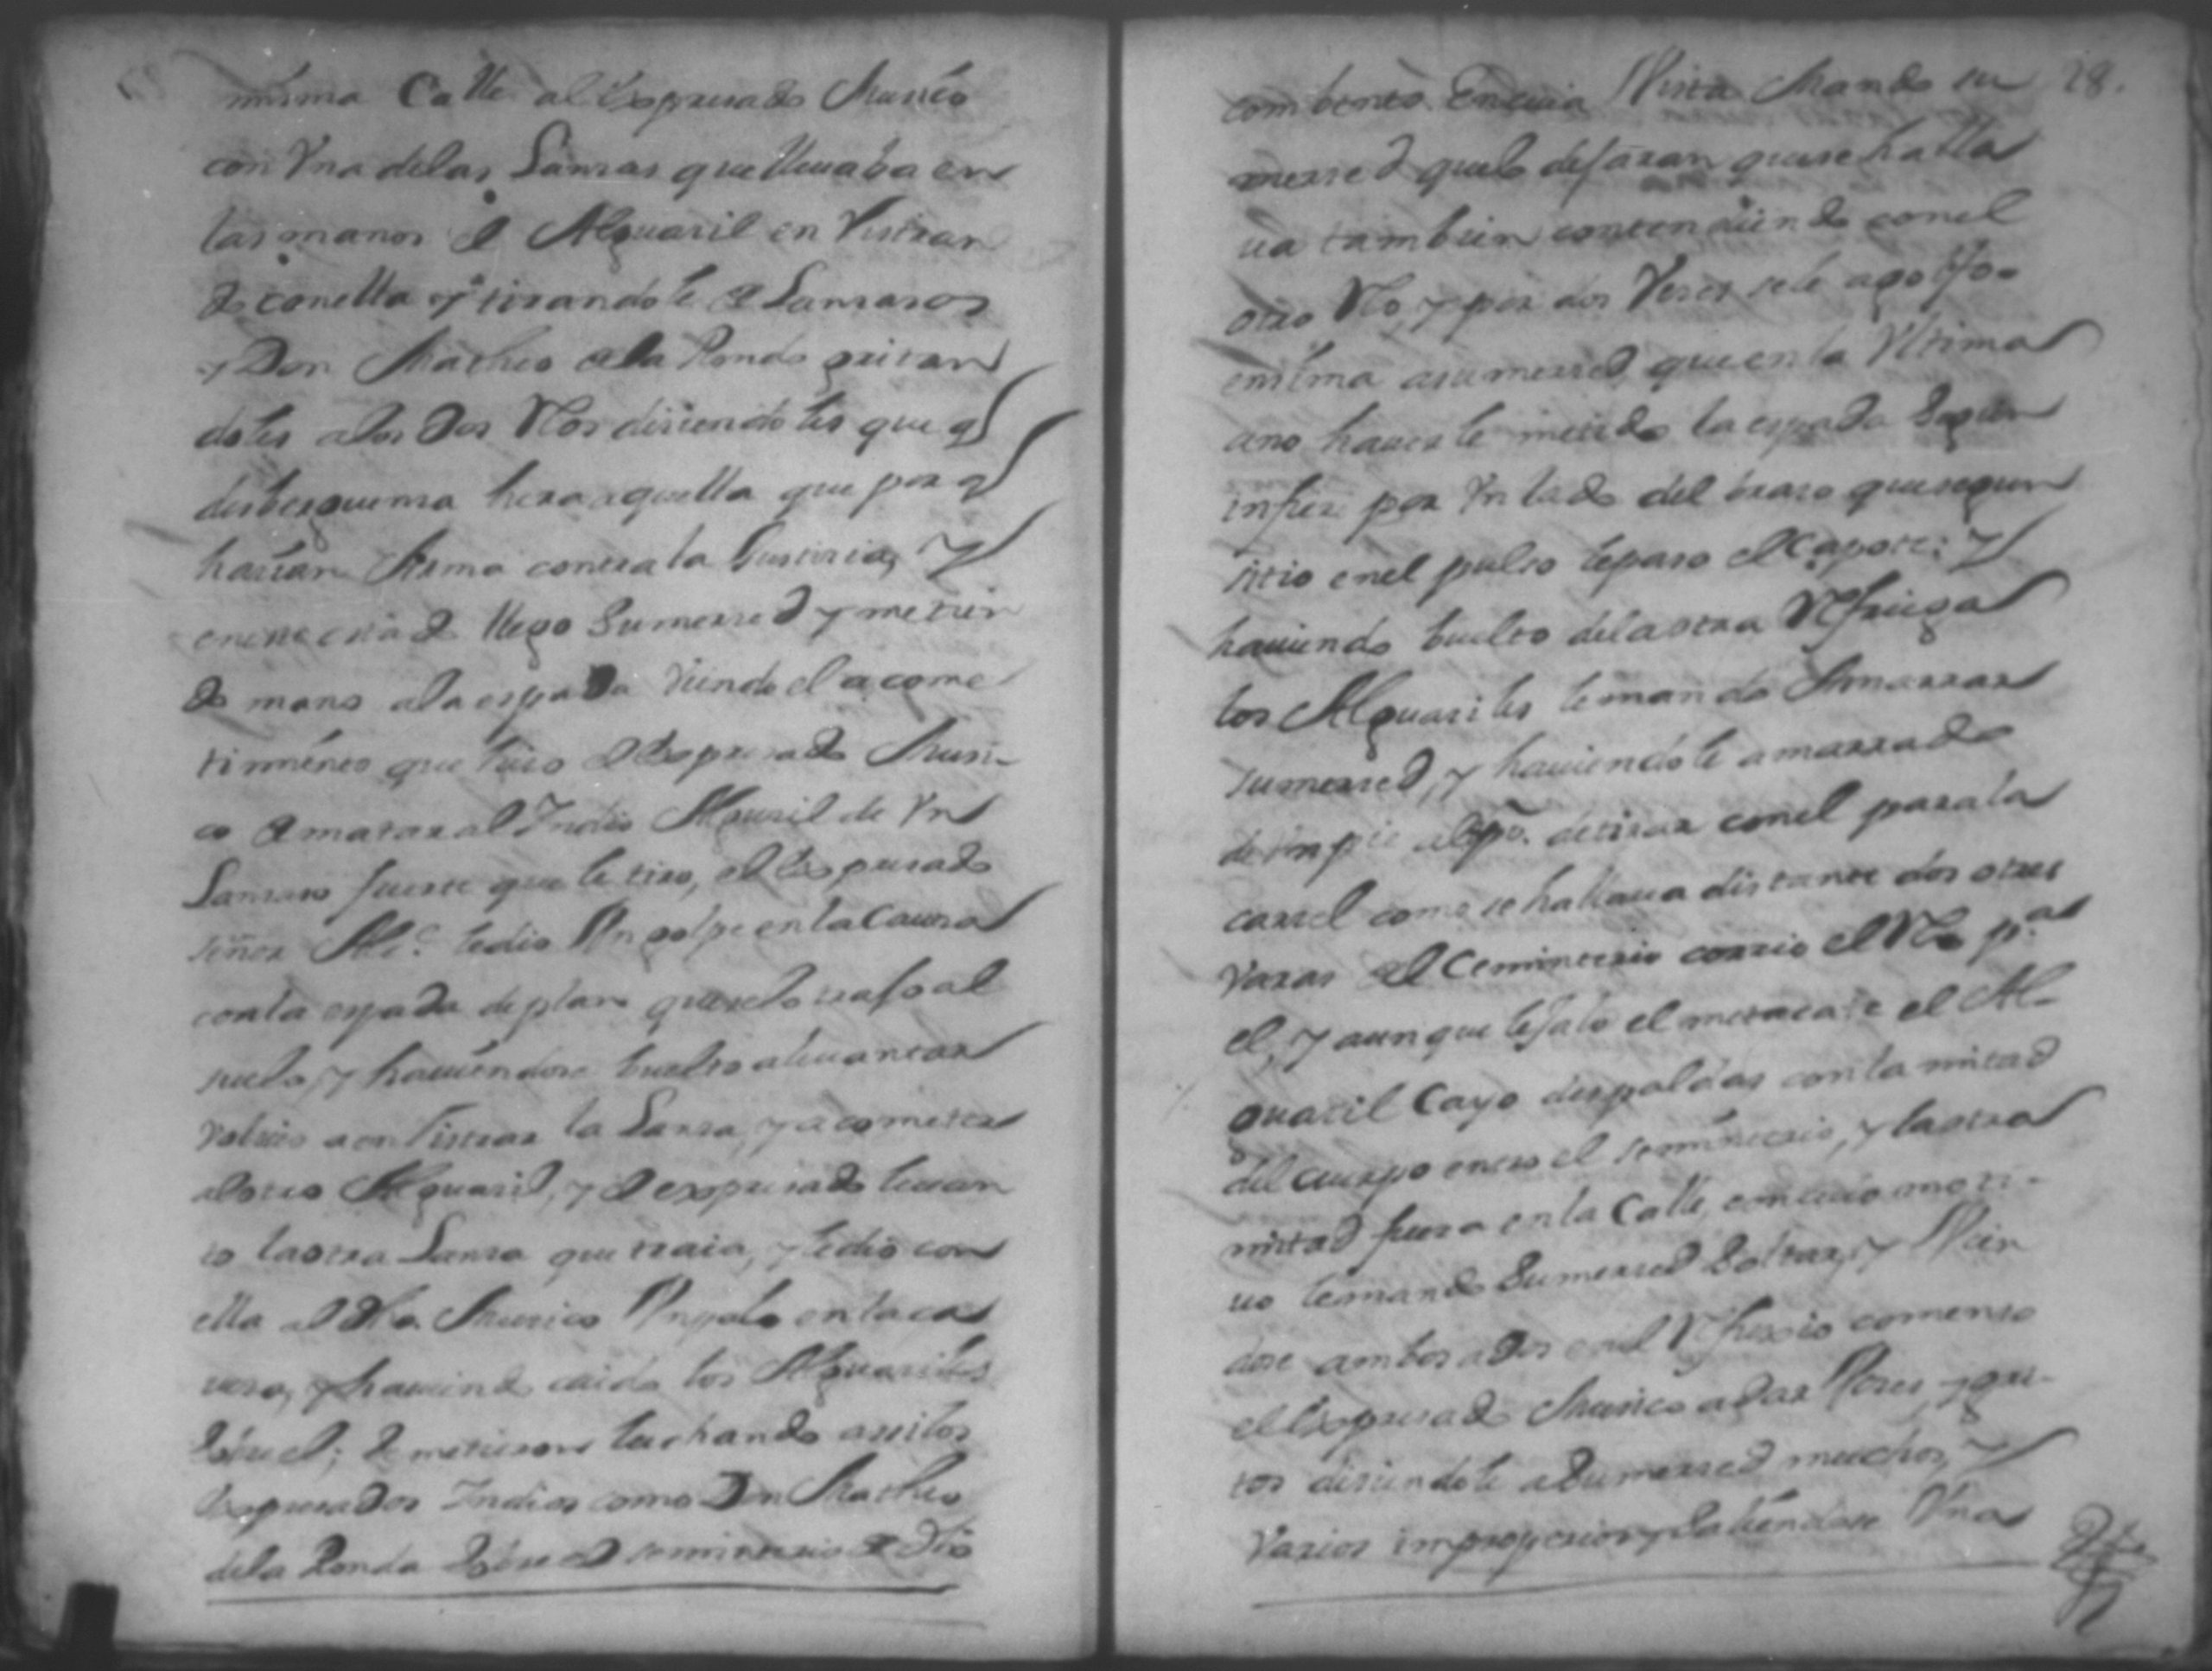 misma Calle al Expresado Musico
con Vna delas Lansas que lleuaba en
las manos el Alguasil en Vistran
do conella y tirandole de Lansasos
y Don Matheo dela Ronda gritan
doles alos dos Ros disiendoles que q
desberguensa hera aquella que por q
hasian Arma contra la Justisia, y
en esto llego Sumerced y metien
do mano ala espada Viendo el acome
timiento que hiso el Expresado Musi-
co a matar al Indio Alguasil de Vn
Lansaso fuerte que le tiro, el Expresado
señor Alc.e le dio Vn golpe en la Cauesa
con la espada de plano que lo trajo al
suelo, y hauiendose buelto aleuantar
Voluio a enRistrar la Lansa, y acometer
al otro Alguasil, y el expresado leuan
to la otra Lansa que traia, y le dio con
ella al dho. Musico Vn palo en la ca
uesa, y hauiendo caido los Alguasiles
sobre el; se metieron luchando asi los
Expresados Indios como Don Matheo
dela Ronda sobre el sementerio de dho
combento. En cuia Vista Mando su 28.
merced que lo dejaran que se halla
ua tambien contendiendo con el
otro Ro, y por dos Veses se le agolpo
ensima a sumerced, que en la Vltima
a no hauerle metido la espada Segun
infier por Vn lado del braso que segun
sitio en el pulso le paso el Capote: y
hauiendo buelto de la otra Refriega
los Alguasiles le mando Amarrar
sumerced, y hauiendole amarrado
de Vn pie al tpo. de tirar con el para la
carsel como se hallaua distante dos o tres
Varas del Ceminterio corrio el Ro p.a
el, y aunque le jalo el mecate el Al-
guasil Cayo de espaldas con la mitad
del cuerpo entro el seminterio, y la otra
mitad fuera en la Calle, con cuio moti-
uo le mando Sumerced Soltar, y Vien
dose ambos ados en el Refuxio comenso
el Expresado Musico a dar Voses, y gri-
tos disiendole a Sumerced muchos, y
Varios improperios y saliendose Vna